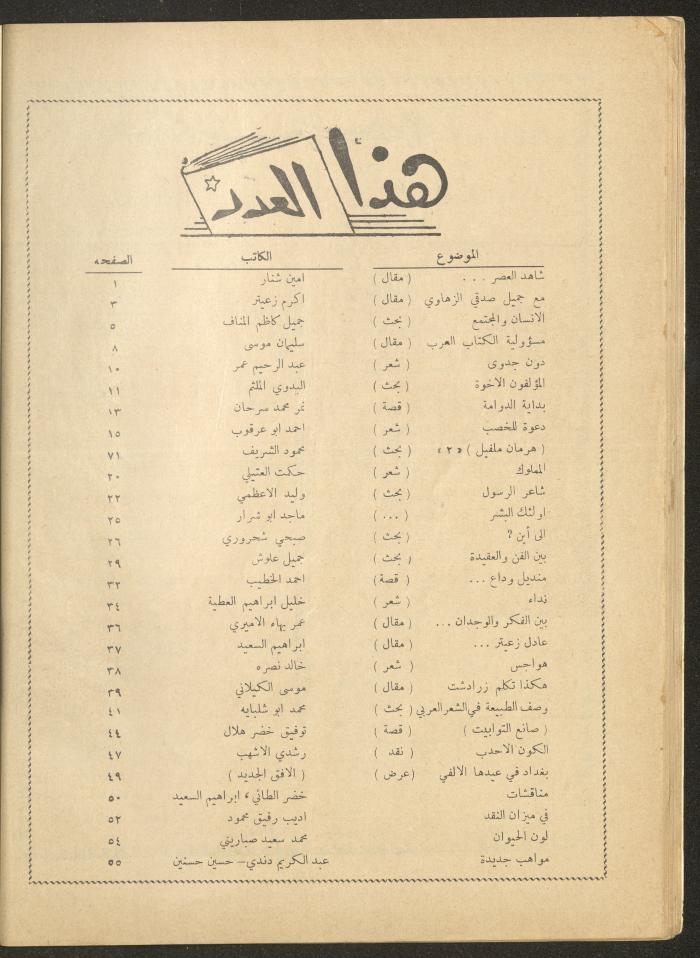 هذا العدد
الموضوع الكاتب الصفحه
شاهد العصر . . . ( مقال ) امين شنار ١
مع جميل صدقي الزهاوي ( مقال ) اكرم زعيتر ٣
الانسان والمجتمع ( بحث ) جميل كاظم المناف ٥
مسؤولية الكتاب العرب ( مقال ) سليمان موسى ٨
دون جدوى ( شعر ) عبد الرحيم عمر ١٠
المؤلفون الاخوة ( بحث ) البدوي الملثم ١١
بداية الدوامة ( قصة ) نمر محمد سرحان ١٣
دعوة للخصب ( شعر ) احمد ابو عرقوب ١٥
( هرمان ملفيل ) « ٢ » ( بحث ) محمود الشريف ٧١
المملوك ( شعر ) حكمت العتيلي ٢٠
شاعر الرسول ( بحث ) وليد الاعظمي ٢٢
اولئك البشر ( . . . ) ماجد ابو شرار ٢٥
الى أين ? ( بحث ) صبحي شحروري ٢٦
بين الفن والعقيدة ( بحث ) جميل علوش ٢٩
منديل وداع . . . ( قصة ) احمد الخطيب ٣٢
نداء ( شعر ) خليل ابراهيم العطية ٣٤
بين الفكر والوجدان . . . ( مقال ) عمر بهاء الاميري ٣٦
عادل زعيتر . . . ( مقال ) ابراهيم السعيد ٣٧
هواجس ( شعر ) خالد نصره ٣٨
هكذا تكلم زرادشت ( مقال ) موسى الكيلاني ٣٩
وصف الطبيعة في الشعر العربي ( بحث ) محمد ابو شلبايه ٤١
( صانع التوابيت ) ( قصة ) توفيق خضر هلال ٤٤
الكون الاحدب ( نقد ) رشدي الاشهب ٤٧
بغداد في عيدها الالفي ( عرض ) ( الافق الجديد ) ٤٩
مناقشات خضر الطائي ، ابراهيم السعيد ٥٠
في ميزان النقد اديب رفيق محمود ٥٢
لون الحيوان محمد سعيد صباريني ٥٤
مواهب جديدة عبد الكريم دندي – حسين حسنين ٥٥